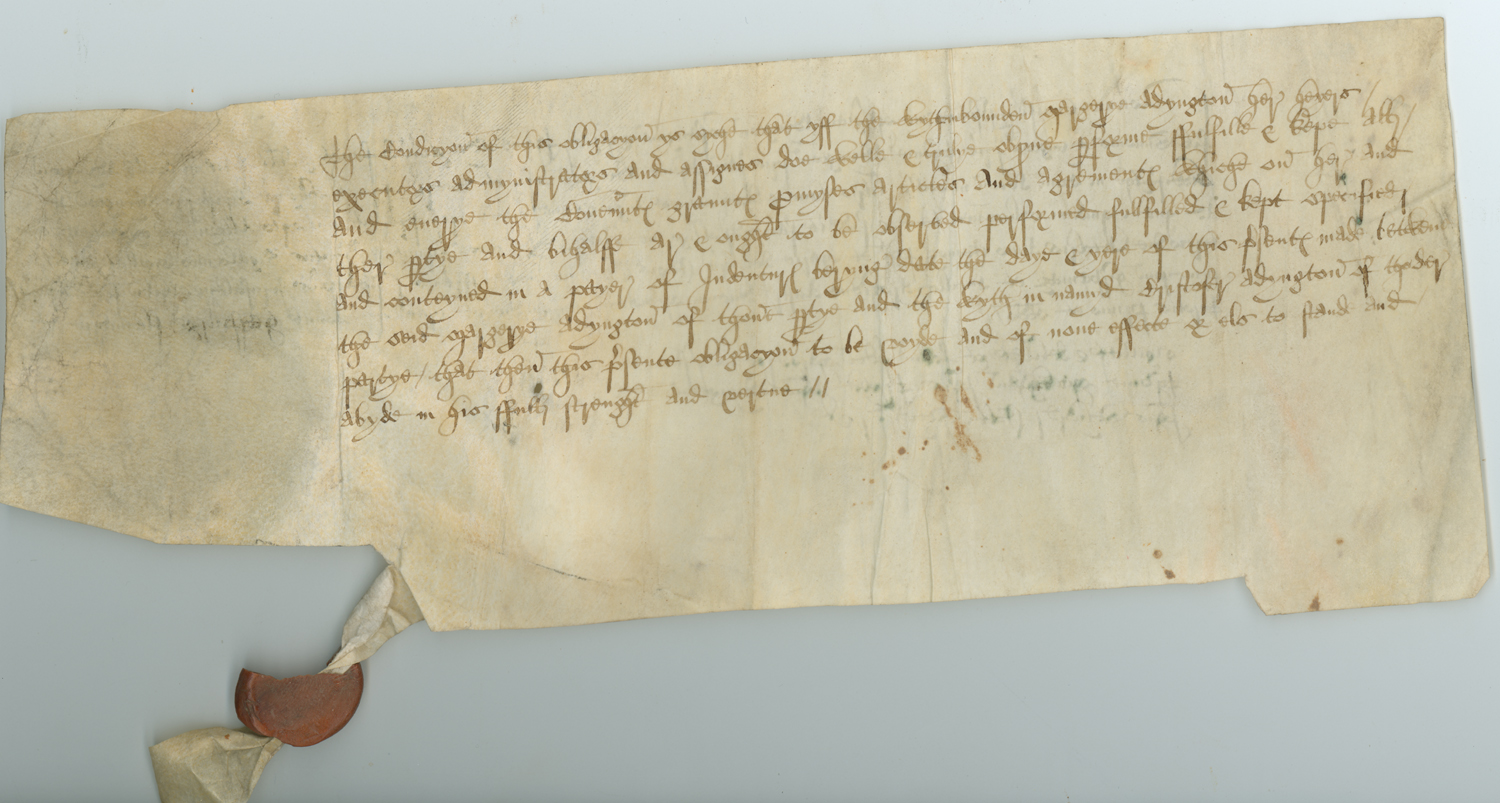 The Condicyon of this obligacyon ys syche that yff the wythinbounden Margerye Adyngton her heyers /
executors admynistrators and assignes doe welle & trulie obserue performe ffulfille & kepe all /
And euerye the Couenantes grauntes promyses articles And agrementes whiche on her And
ther partye and behalffe ar & ought to be obserued performed fulfilled & kept specified
And conteyned in a payer of Indentures beryng date the daye & yere of this presentes made betwene
the seid Margerye Adyngton of thone partye and the wythin named Cristofer Adyngton of thoder
partye / that then this presente obligacyon to be voyde and of none effecte & els to stande and
abyde in his ffull strenght and vertue ///